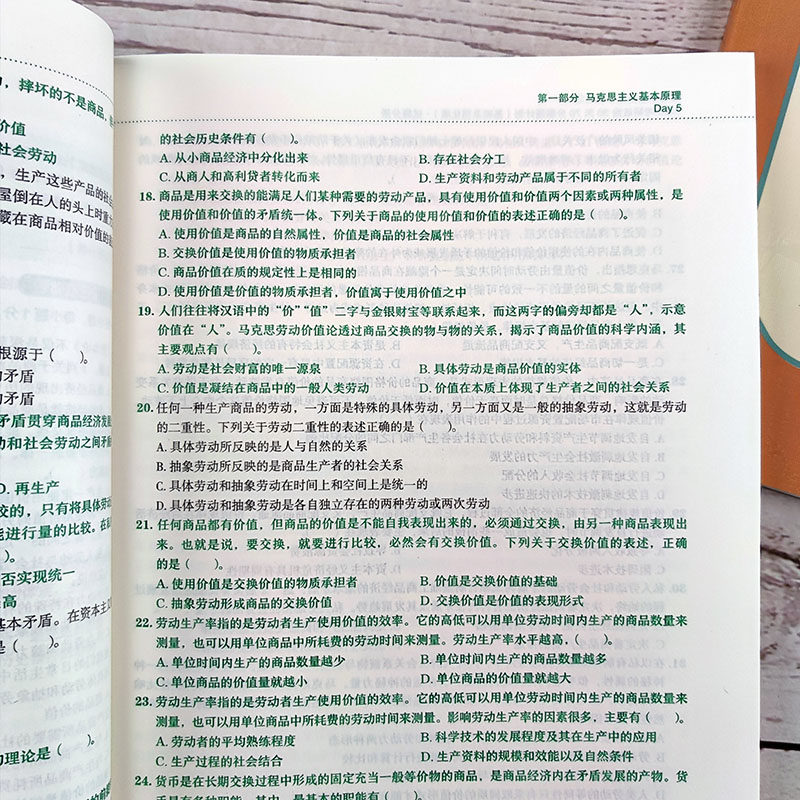 ，摔坏的不是商品，
价值
社会劳动
，生产这些产品的社
屋倒在人的头上时重
藏在商品相对价值的
根源于（　　）。
矛盾
矛盾
矛盾贯穿商品经济发展
动和社会劳动之间矛盾
D. 再生产
较的，只有将具体劳动
能进行量的比较。在
）。
否实现统一
高
基本矛盾。在资本主义
是（　　）。
理论是（　　）。
第一部分　马克思主义基本原理
Day 5
的社会历史条件有（　　）。
A. 从小商品经济中分化出来　　B. 存在社会分工
C. 从商人和高利贷者转化而来　　D. 生产资料和劳动产品属于不同的所有者
18. 商品是用来交换的能满足人们某种需要的劳动产品，具有使用价值和价值两个因素或两种属性，是
使用价值和价值的矛盾统一体。下列关于商品的使用价值和价值的表述正确的是（　　）。
A. 使用价值是商品的自然属性，价值是商品的社会属性
B. 交换价值是使用价值的物质承担者
C. 商品价值在质的规定性上是相同的
D. 使用价值是价值的物质承担者，价值寓于使用价值之中
19. 人们往往将汉语中的“价”“值”二字与金银财宝等联系起来，而这两字的偏旁却都是“人”，示意
价值在“人”。马克思劳动价值论透过商品交换的物与物的关系，揭示了商品价值的科学内涵，其
主要观点有（　　）。
A. 劳动是社会财富的唯一源泉　　B. 具体劳动是商品价值的实体
C. 价值是凝结在商品中的一般人类劳动　　D. 价值在本质上体现了生产者之间的社会关系
20. 任何一种生产商品的劳动，一方面是特殊的具体劳动，另一方面又是一般的抽象劳动，这就是劳动
的二重性。下列关于劳动二重性的表述正确的是（　　）。
A. 具体劳动所反映的是人与自然的关系
B. 抽象劳动所反映的是商品生产者的社会关系
C. 具体劳动和抽象劳动在时间上和空间上是统一的
D. 具体劳动和抽象劳动是各自独立存在的两种劳动或两次劳动
21. 任何商品都有价值，但商品的价值是不能自我表现出来的，必须通过交换，由另一种商品表现出
来。也就是说，要交换，就要进行比较，必然会有交换价值。下列关于交换价值的表述，正确
的是（　　）。
A. 使用价值是交换价值的物质承担者　　B. 价值是交换价值的基础
C. 抽象劳动形成商品的交换价值　　D. 交换价值是价值的表现形式
22. 劳动生产率指的是劳动者生产使用价值的效率。它的高低可以用单位劳动时间内生产的商品数量来
测量，也可以用单位商品中所耗费的劳动时间来测量。劳动生产率水平越高，（　　）。
A. 单位时间内生产的商品数量越少　　B. 单位时间内生产的商品数量越多
C. 单位商品的价值量就越小　　D. 单位商品的价值量就越大
23. 劳动生产率指的是劳动者生产使用价值的效率。它的高低可以用单位劳动时间内生产的商品数量来
测量，也可以用单位商品中所耗费的劳动时间来测量。影响劳动生产率的因素很多，主要有（　　）。
A. 劳动者的平均熟练程度　　B. 科学技术的发展程度及其在生产中的应用
C. 生产过程的社会结合　　D. 生产资料的规模和效能以及自然条件
24. 货币是在长期交换过程中形成的固定充当一般等价物的商品，是商品经济内在矛盾发展的产物。货
币具有多种职能，其中，最基本的职能有（　　）。